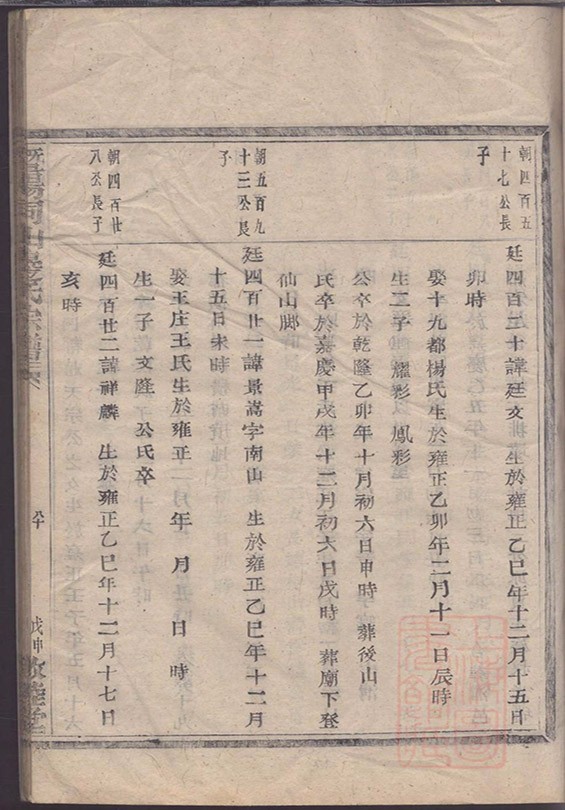 朝四百五
十七公長
子
廷四百二十諱廷文 生於雍正乙巳年十二月十五日
卯時
娶十九都楊氏生於雍正乙卯年二月十一日辰時
生二子 耀彩 鳳彩
公卒於乾隆乙卯年十月初六日申時 葬後山
氏卒於嘉慶甲戌年十二月初六日戌時 葬廟下登
仙山脚
朝五百九
十三公長
子
廷四百廿一諱景嵩字南山 生於雍正乙巳年十二月
十五日未時
娶王庄王氏生於雍正 年 月 日 時
生一子 文隆 公氏卒
朝四百廿
八公長子
廷四百廿二諱祥麟 生於雍正乙巳年十二月十七日
亥時
戊申
敦睦堂